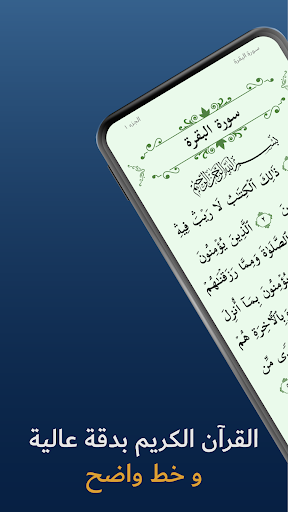 سورة البقرة
الجزء ١
سورة البقرة
بِسْمِ ٱللَّهِ ٱلرَّحْمَٰنِ ٱلرَّحِيمِ
ذَٰلِكَ ٱلْكِتَٰبُ لَا رَيْبَۛ فِيهِۛ
٢ ٱلَّذِينَ يُؤْمِنُونَ
ٱلصَّلَوٰةَ وَمِمَّا رَزَقْنَٰهُمْ
يُؤْمِنُونَ بِمَآ أُنزِلَ
وَبِٱلْءَاخِرَةِ هُمْ
مِّن
القرآن الكريم بدقة عالية
و خط واضح